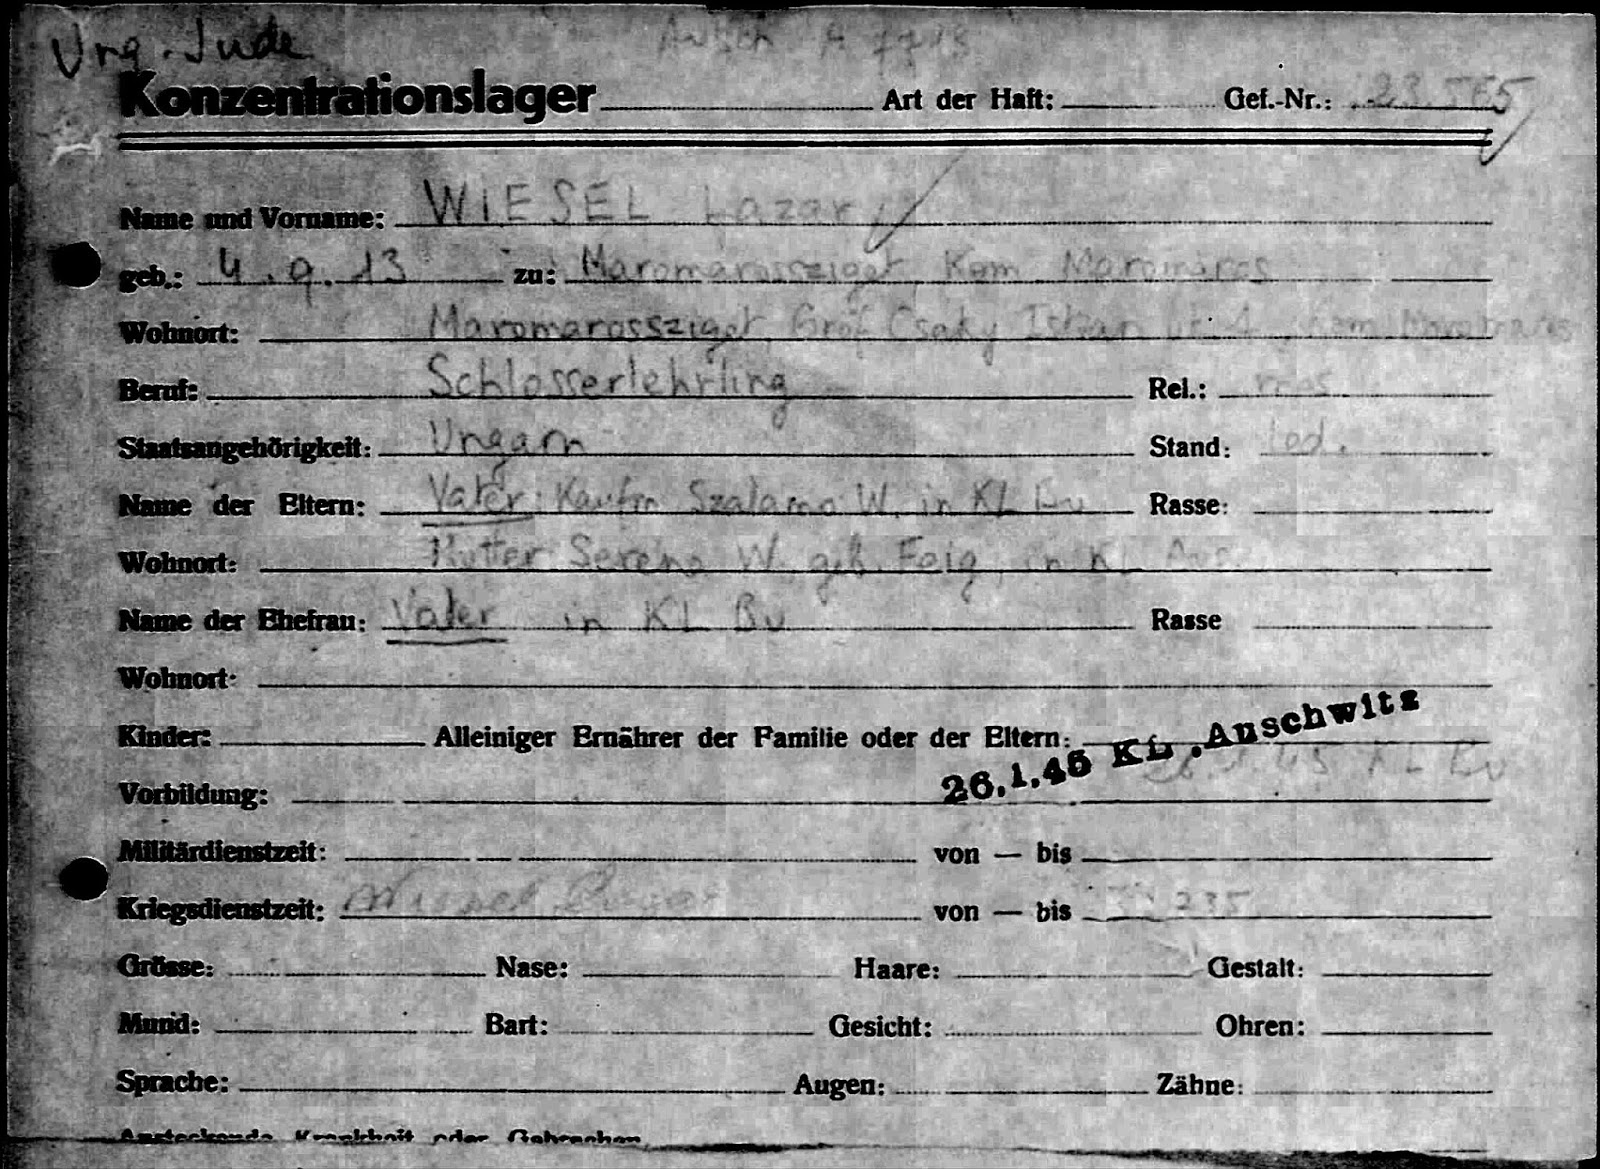 Ung. Jude
Konzentrationslager Art der Haft: Gef.-Nr.:
Name und Vorname: WIESEL Lazar
geb.: 4.9.13 zu: Maromarossziget Kom Maromaros
Wohnort: Maromarossziget Gróf Csaky Istvan
Beruf: Schlosserlehrling Rel.: mos
Staatsangehörigkeit: Ungarn Stand: led.
Name der Eltern: Vater: Kaufm Szalamo W. in KL Bu Rasse:
Wohnort: Mutter Serena W. geb. Feig, in KL
Name der Ehefrau: Vater in KL Bu Rasse
Wohnort:
Kinder: Alleiniger Ernährer der Familie oder der Eltern:
26.1.45 KL. Auschwitz
26.1.45 KL Bu
Vorbildung:
Militärdienstzeit: von — bis
Kriegsdienstzeit: von — bis
Grösse: Nase: Haare: Gestalt:
Mund: Bart: Gesicht: Ohren:
Sprache: Augen: Zähne:
Ansteckende Krankheit oder Gebrechen